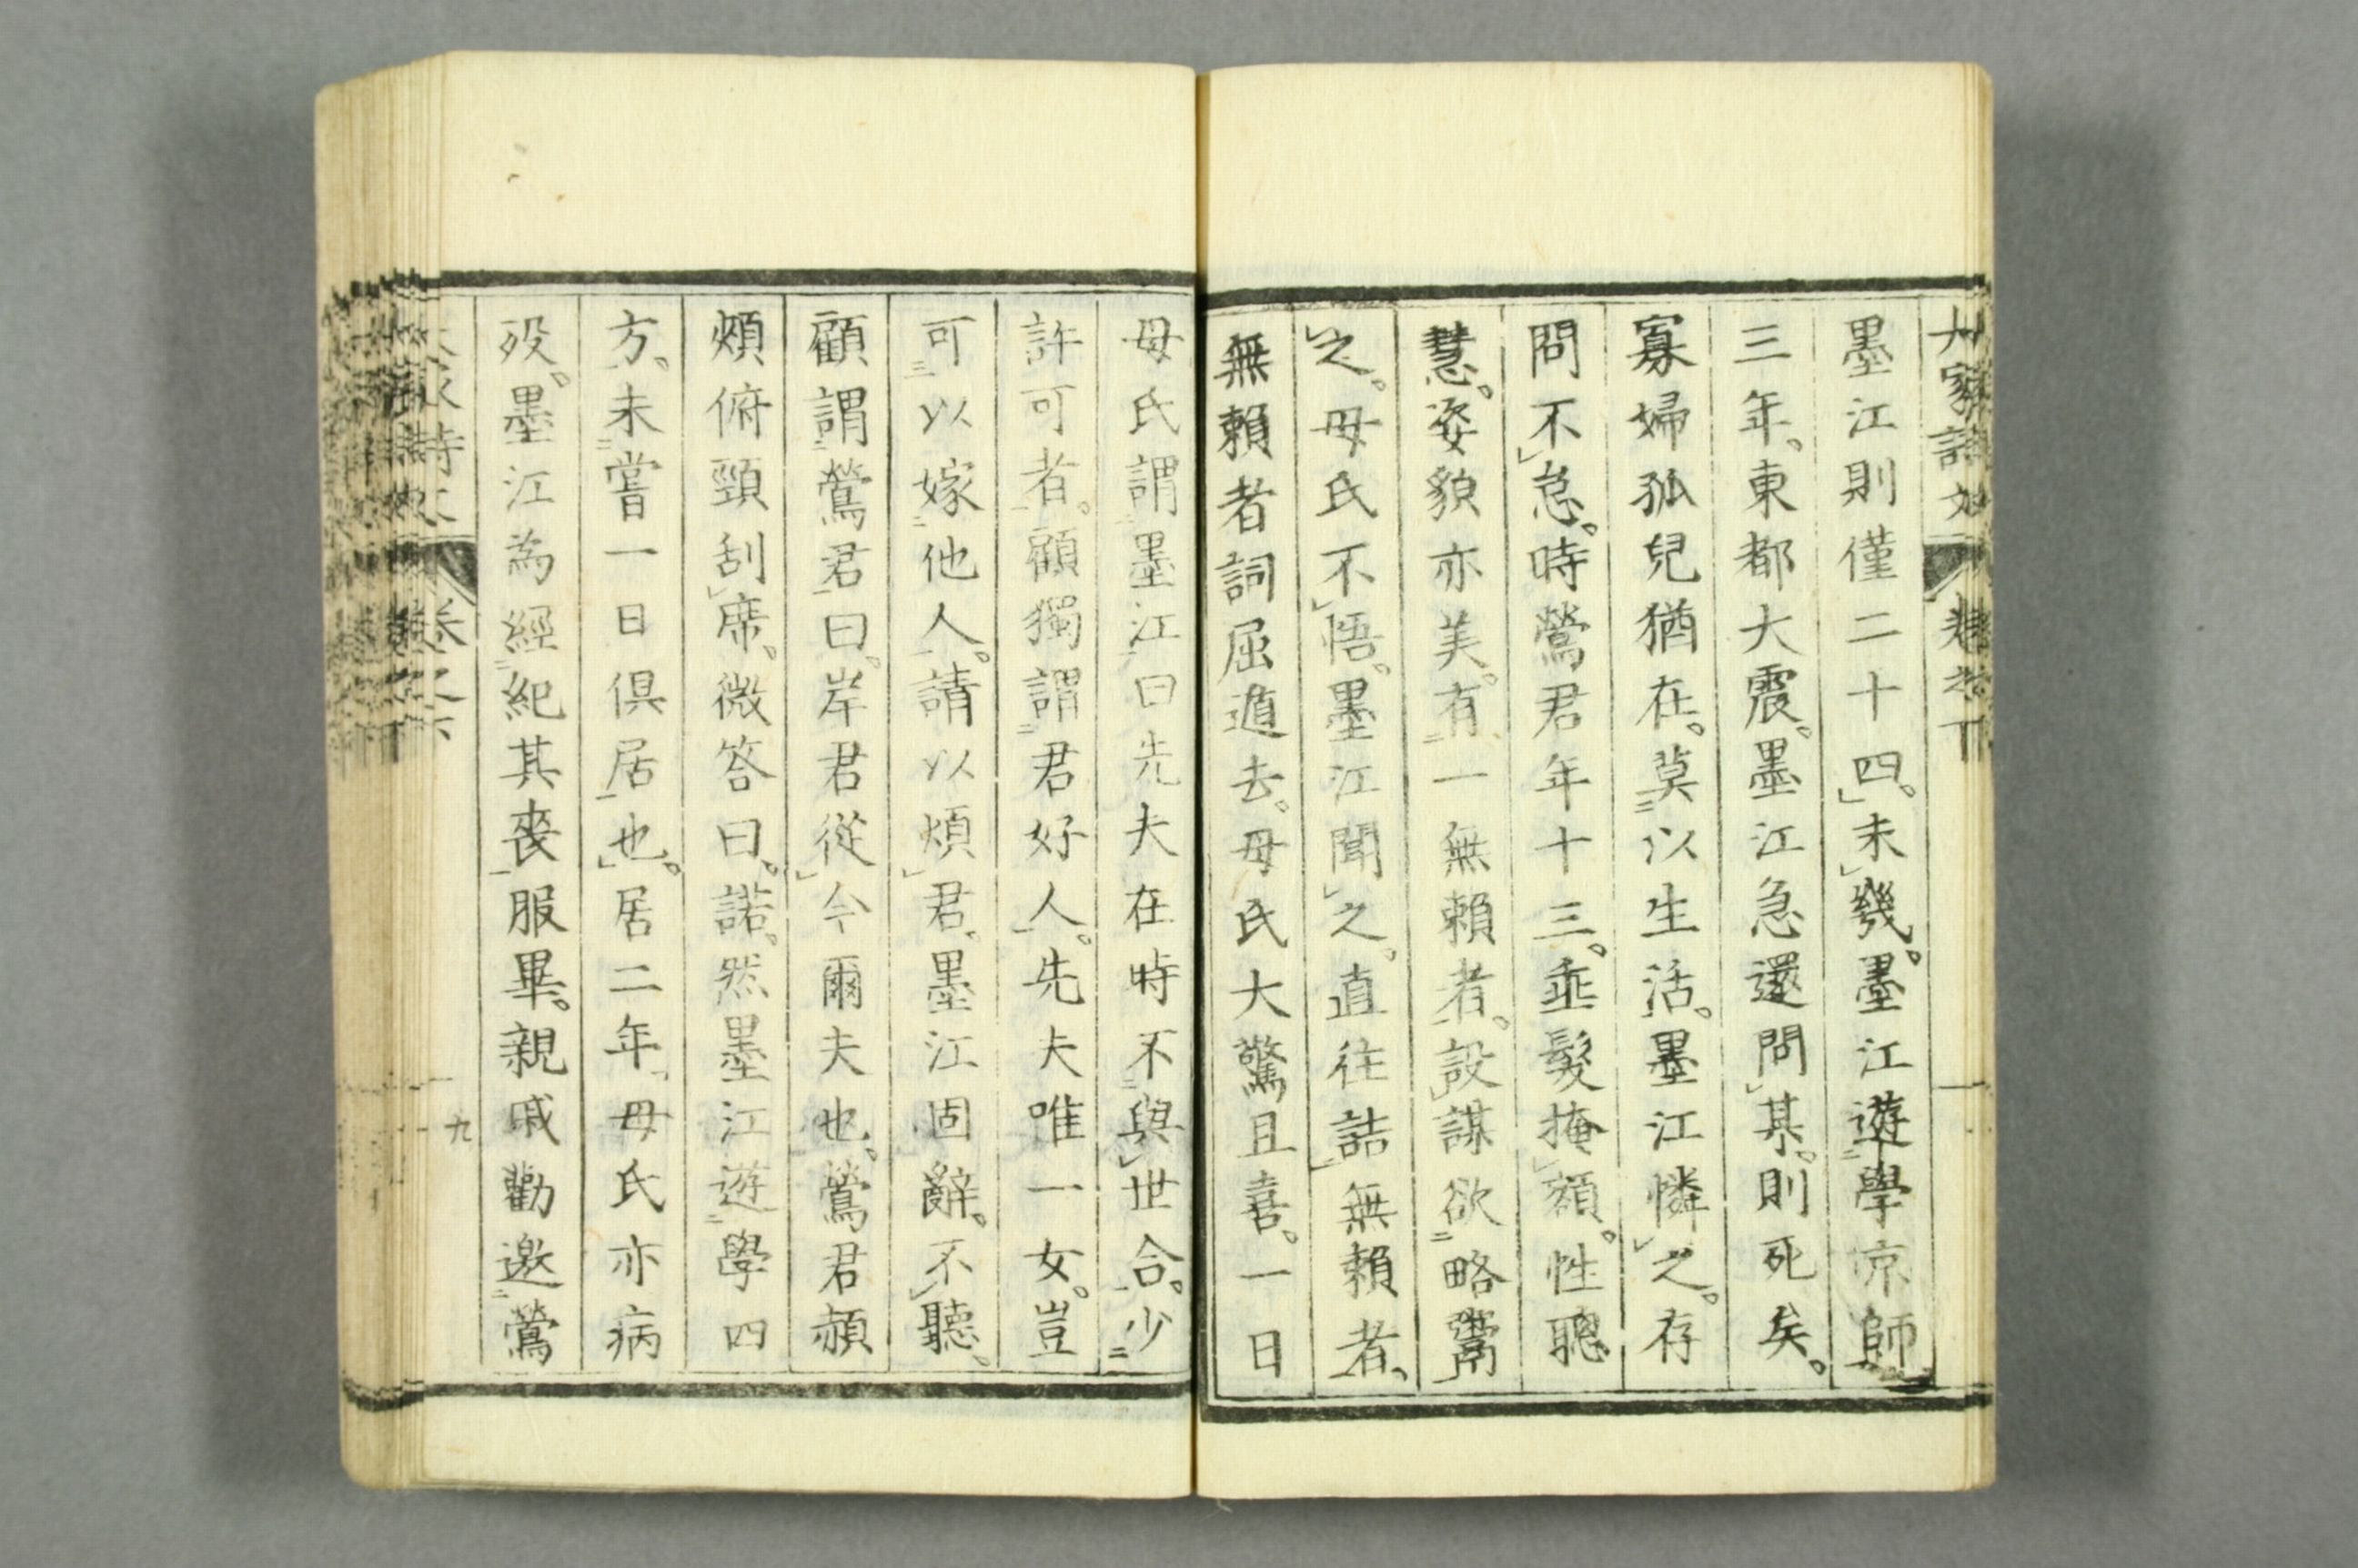 墨江則僅二十四。未幾。墨江遊學京師
三年。東都大震。墨江急還問某。則死矣。
寡婦孤兒猶在。莫以生活。墨江憐之。存
問不怠。時鶯君年十三。垂髮掩額。性聰
慧。姿貌亦美。有一無賴者。設謀欲略鬻
之。母氏不悟。墨江聞之。直往詰無賴者、
無賴者詞屈遁去。母氏大驚且喜。一日
母氏謂墨江曰先夫在時不與世合。少
許可者。顧獨謂君好人。先夫唯一女。豈
可以嫁他人。請以煩君、墨江固辭。不聽。
顧謂鶯君曰。岸君從今爾夫也、鶯君頳
頰俯頸刮席、微答曰、諾。然墨江遊學四
方、未嘗一日俱居也。居二年、母氏亦病
歿。墨江為經紀其喪服畢。親戚勸邀鶯
九